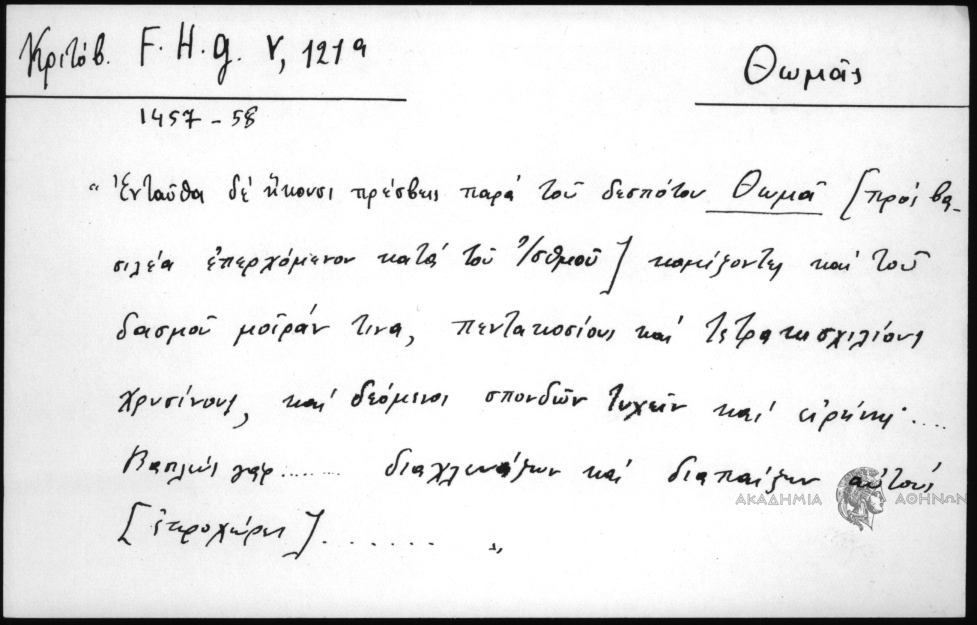 Κριτόβ. F. H. g. V, 121a
Θωμᾶς
1457-58
"Ἐνταῦθα δέ ἥκουσι πρέσβεις παρά τοῦ δεσπότου Θωμᾶ [πρός βα-
σιλέα ἐπερχόμενον κατά τοῦ Ἰσθμοῦ] κομίζοντες καί τοῦ
δασμοῦ μοῖράν τινα, πεντακοσίους καί τετρακισχιλίους
χρυσίνους, καί δεόμενοι σπονδῶν τυχεῖν καί εἰρήνης....
Βασιλεύς γάρ....... διαχλευάζων καί διαπαίζων αὐτούς
[ἐπροχώρει]........ "
ΑΚΑΔΗΜΙΑ ΑΘΗΝΩΝ